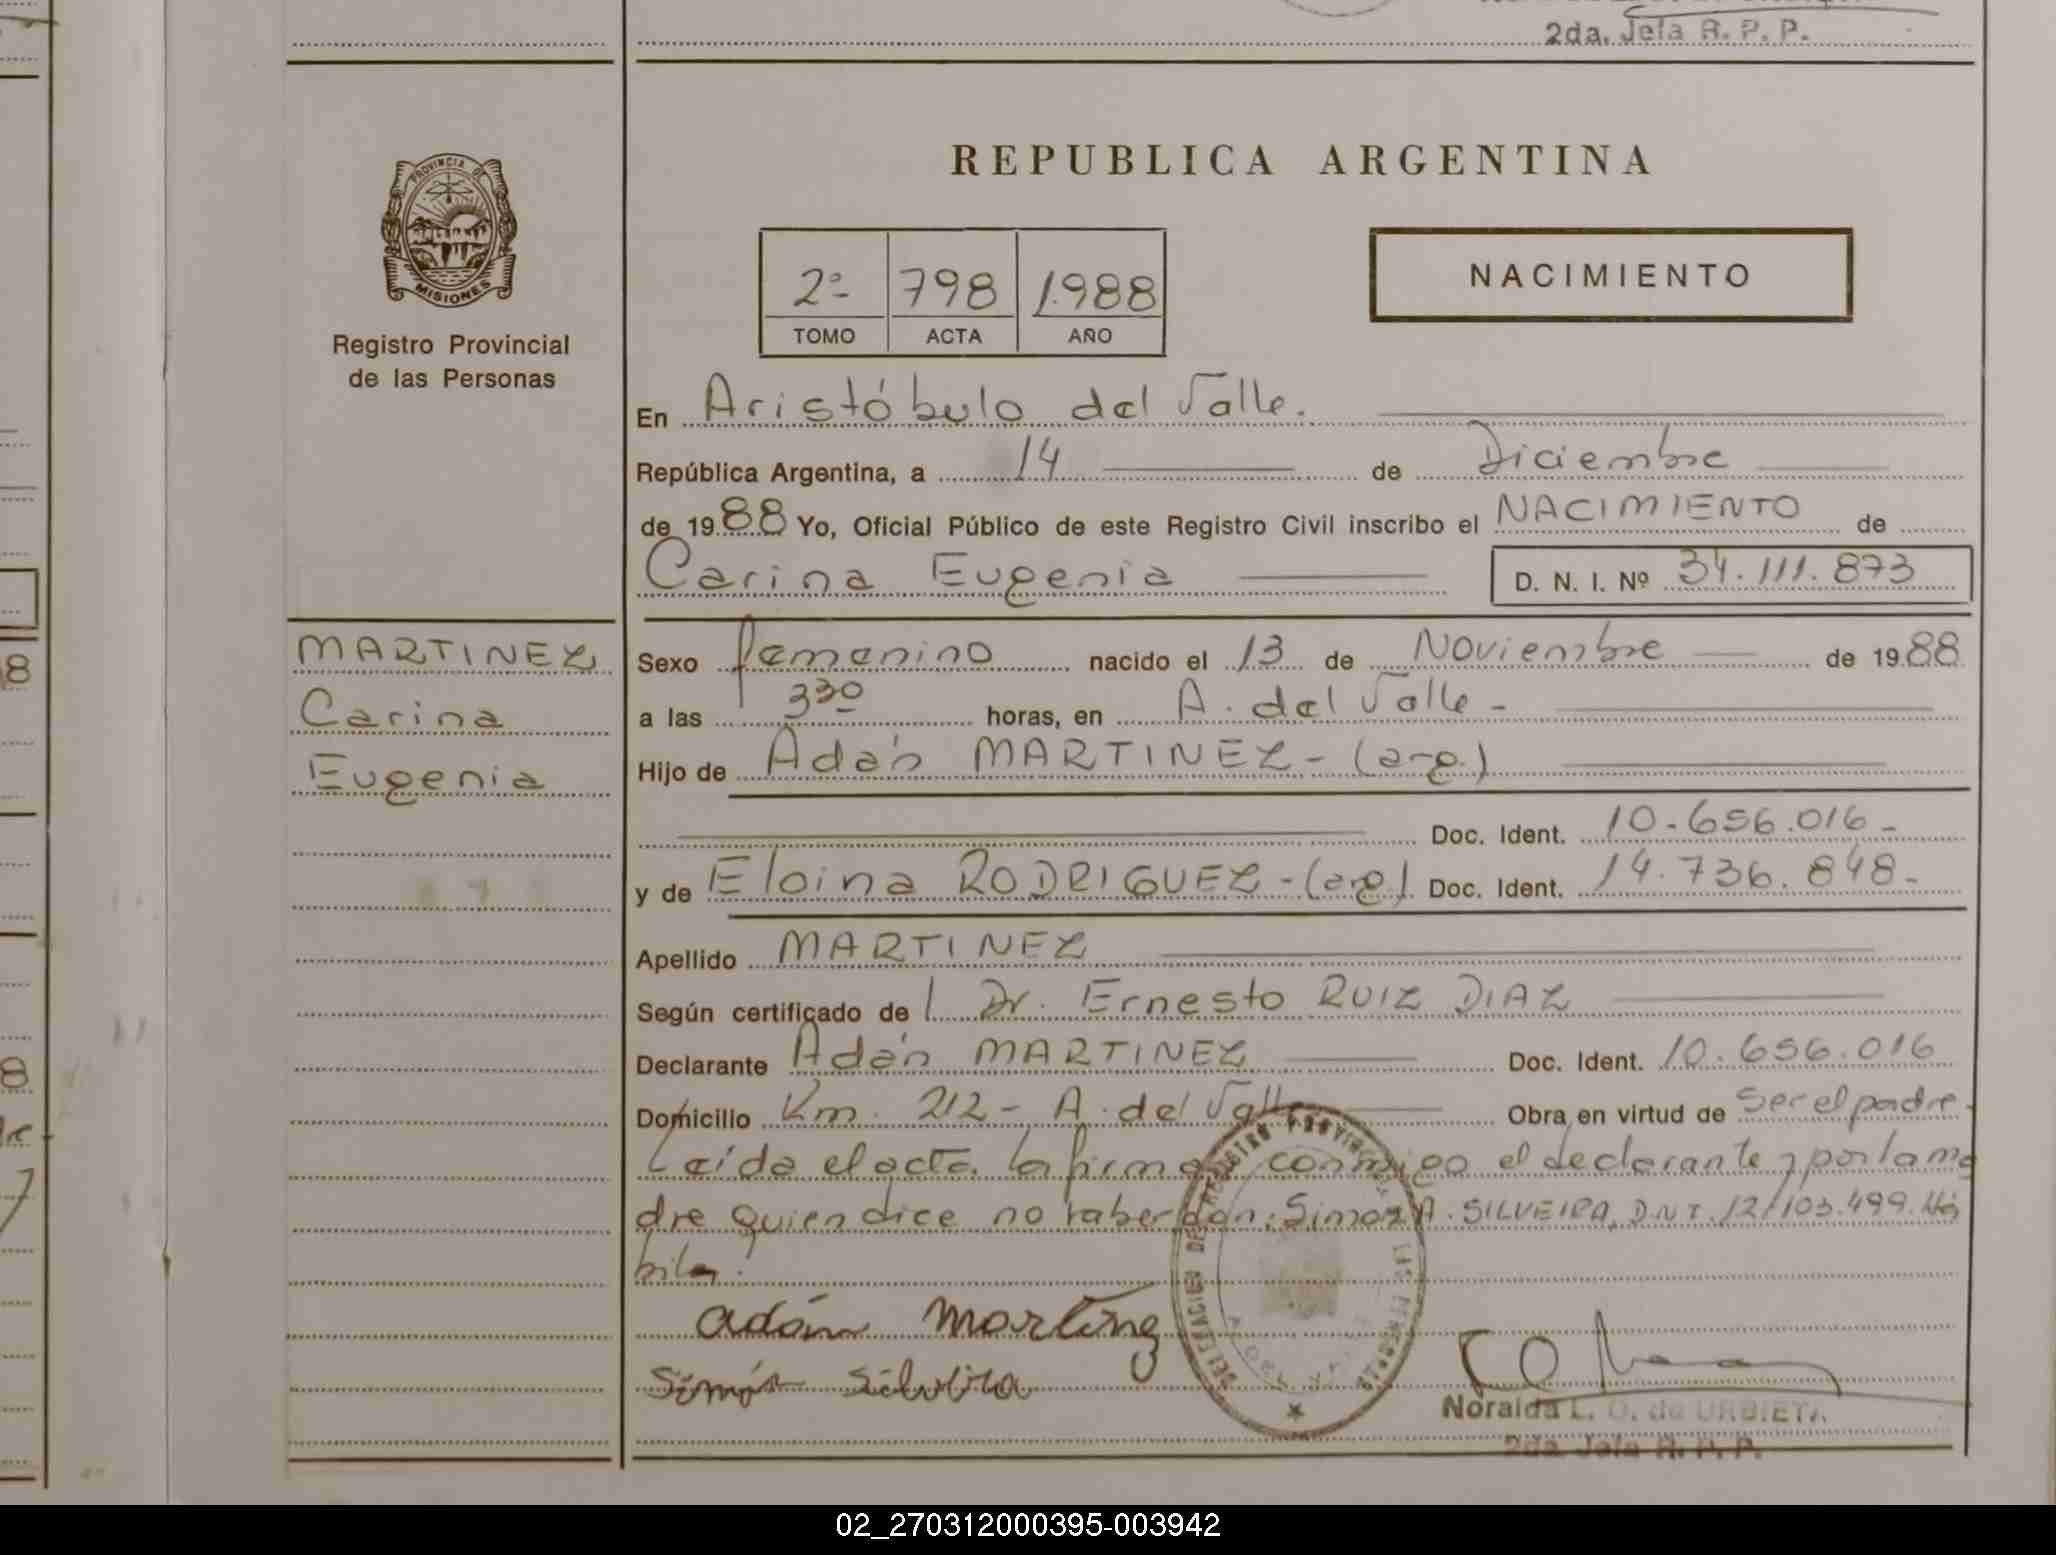 2da. Jefa R. P. P.
PROVINCIA DE
MISIONES
Registro Provincial
de las Personas
MARTINEZ
Carina
Eugenia
REPUBLICA ARGENTINA
2º 798 1.988
TOMO ACTA AÑO
NACIMIENTO
En Aristóbulo del Valle.
República Argentina, a 14 de Diciembre
de 1988 Yo, Oficial Público de este Registro Civil inscribo el NACIMIENTO de
Carina Eugenia D. N. I. Nº 34.111.873
Sexo femenino nacido el 13 de Noviembre de 1988
a las 3³⁰ horas, en A. del Valle -
Hijo de Adán MARTINEZ - (arg.)
Doc. Ident. 10.656.016 -
y de Eloina RODRIGUEZ - (arg) Doc. Ident. 14.736.848 -
Apellido MARTINEZ
Según certificado de Dr. Ernesto RUIZ DIAZ
Declarante Adán MARTINEZ Doc. Ident. 10.656.016
Domicilio Km. 212 - A. del Valle Obra en virtud de Ser el padre.
Leída el acta, la firma conmigo el declarante y por la ma
dre quien dice no saber don: Simón A. SILVEIRA, D.N.I. 12.103.499. Há
bil
adán Martinez
Simón Silveira
DELEGACION DEL REGISTRO PROVINCIAL DE LAS PERSONAS
Noralda L. O. de URBIETA
2da. Jefa R. P. P.
02_270312000395-003942